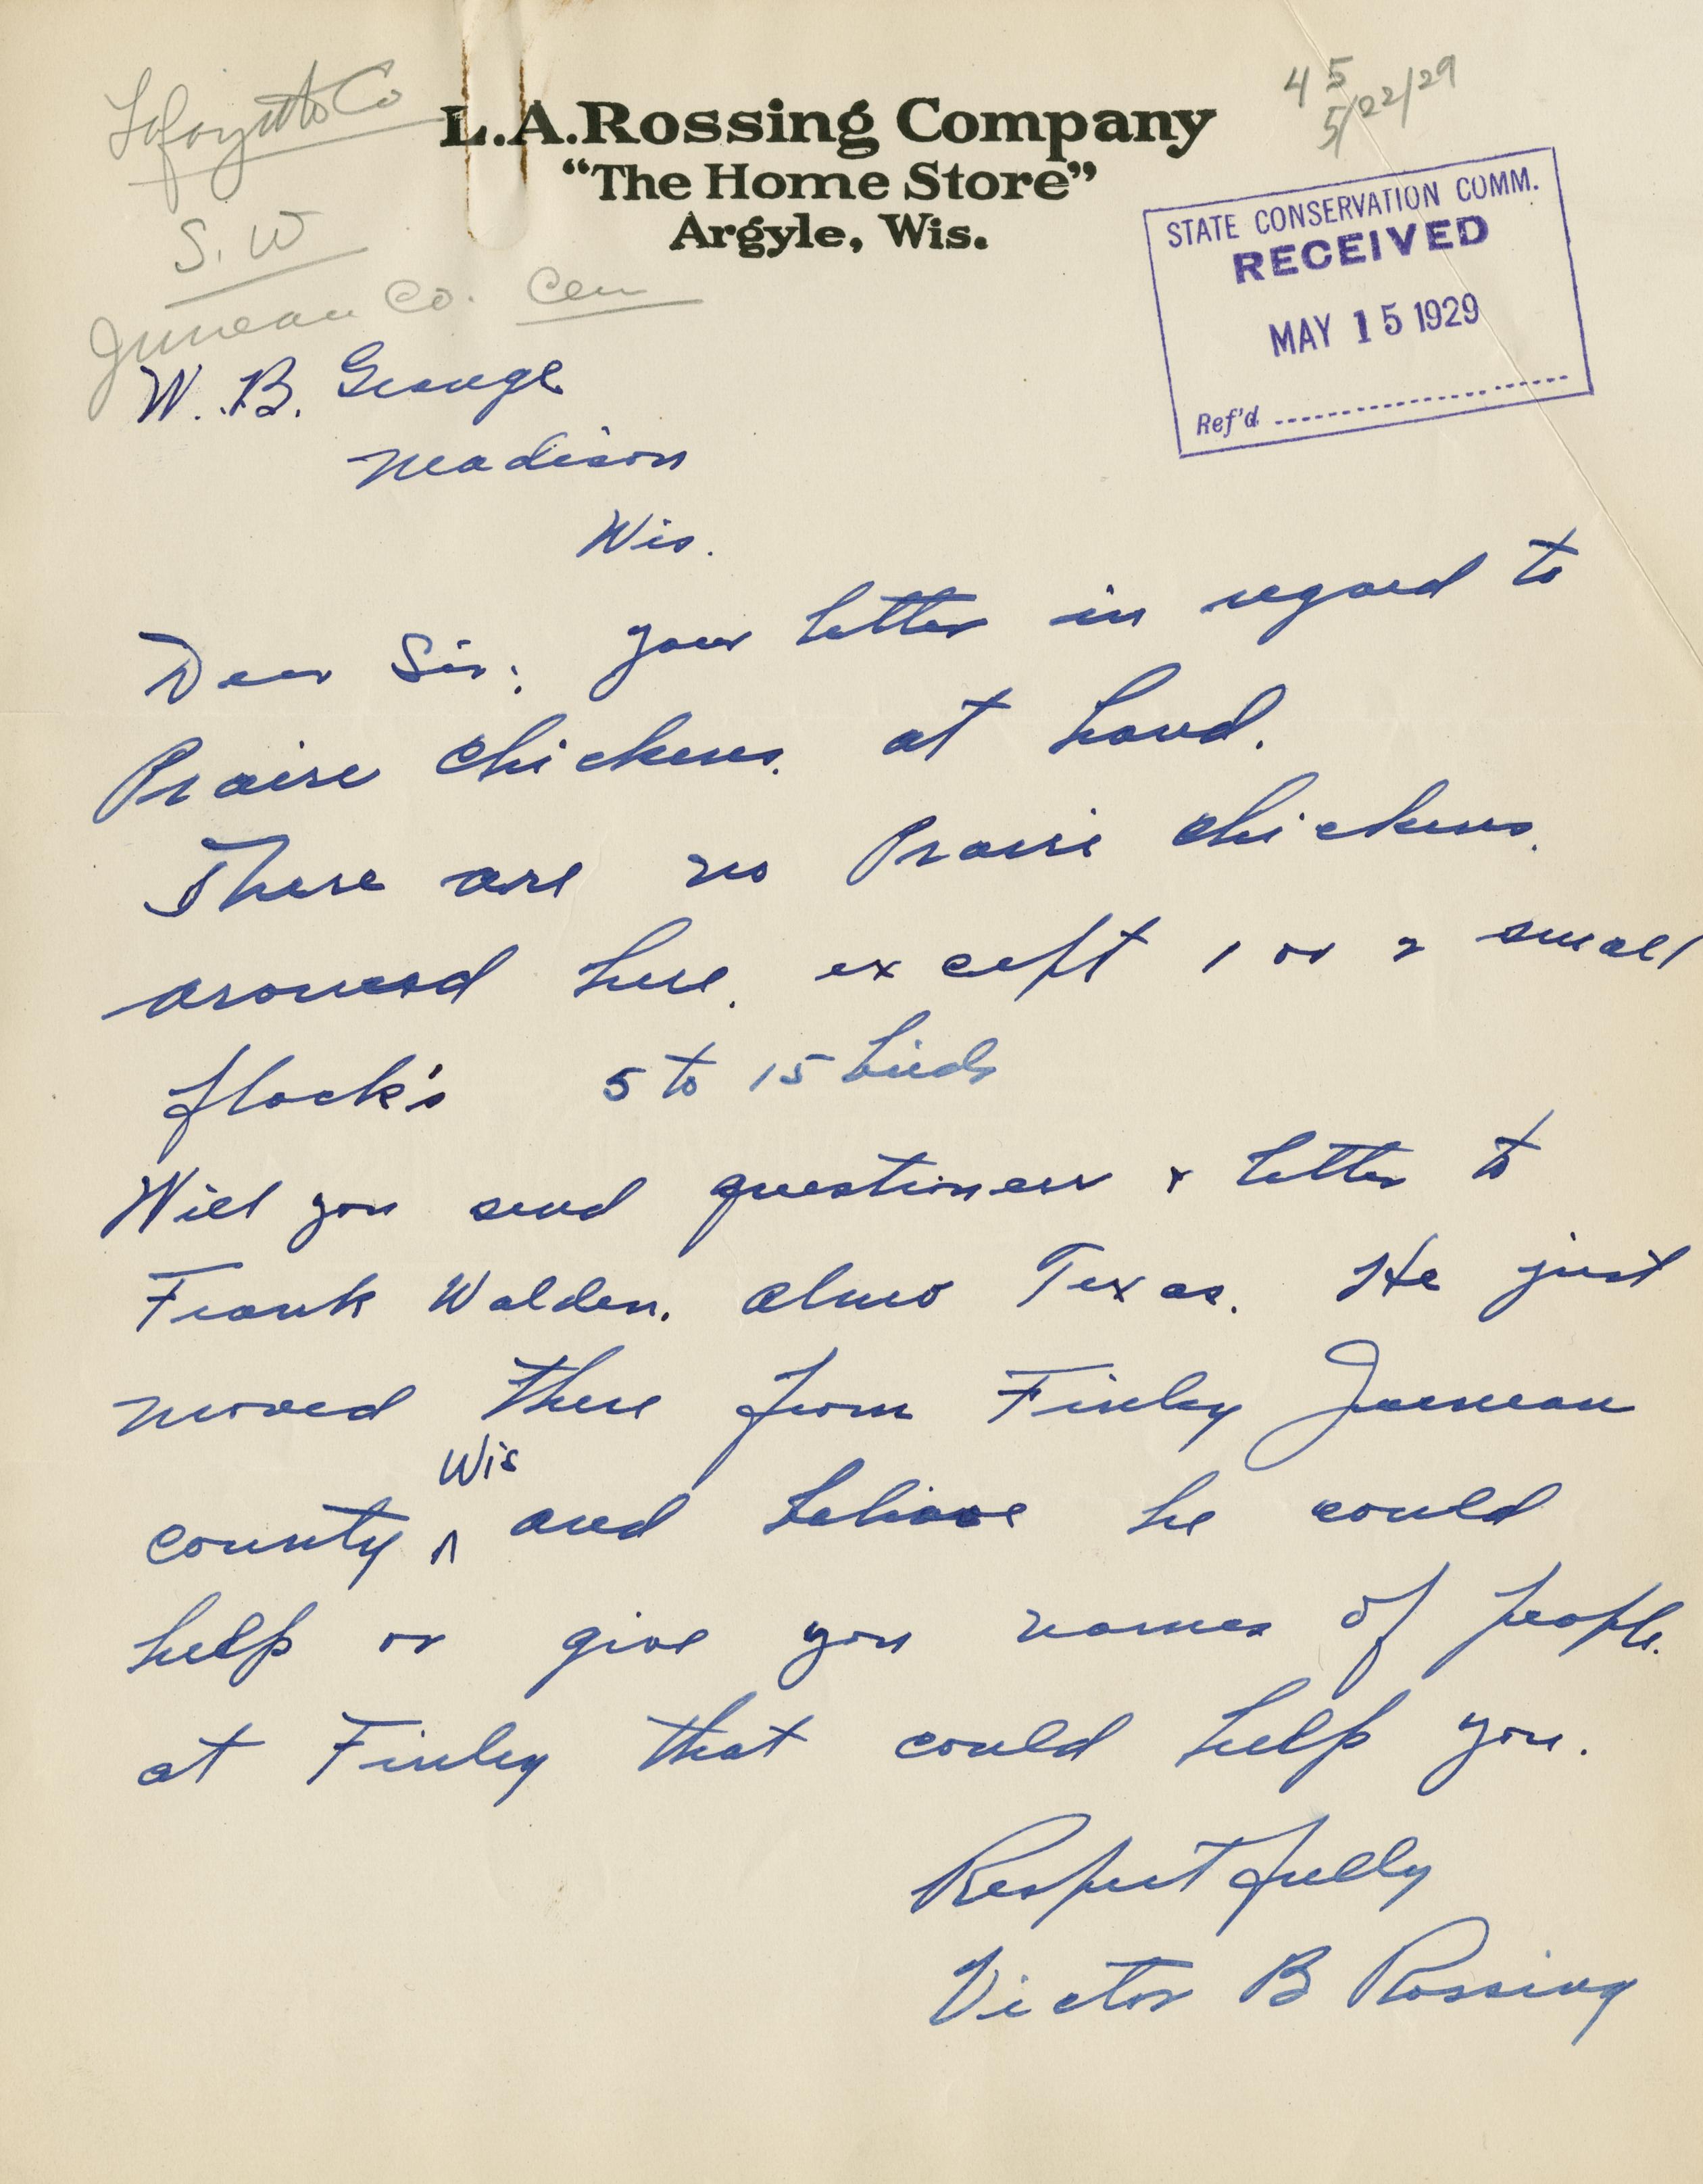 Lafayette Co
S. W
Juneau Co. Cen
4 5
5/22/29
L.A.Rossing Company
“The Home Store”
Argyle, Wis.
STATE CONSERVATION COMM.
RECEIVED
MAY 15 1929
Ref'd
W. B. George
Madison
Wis.
Dear Sir: your letter in regard to
Praire chickens. at hand.
There are no Prairi chickens.
around here. except 1 or 2 small
flock's 5 to 15 birds
Will you send questioners & letter to
Frank Walden. Almo Texas. He just
moved there from Finley Juneau
county Wis and believe he could
help or give you names of people.
at Finley that could help you.
Respectfully
Victor B Rossing